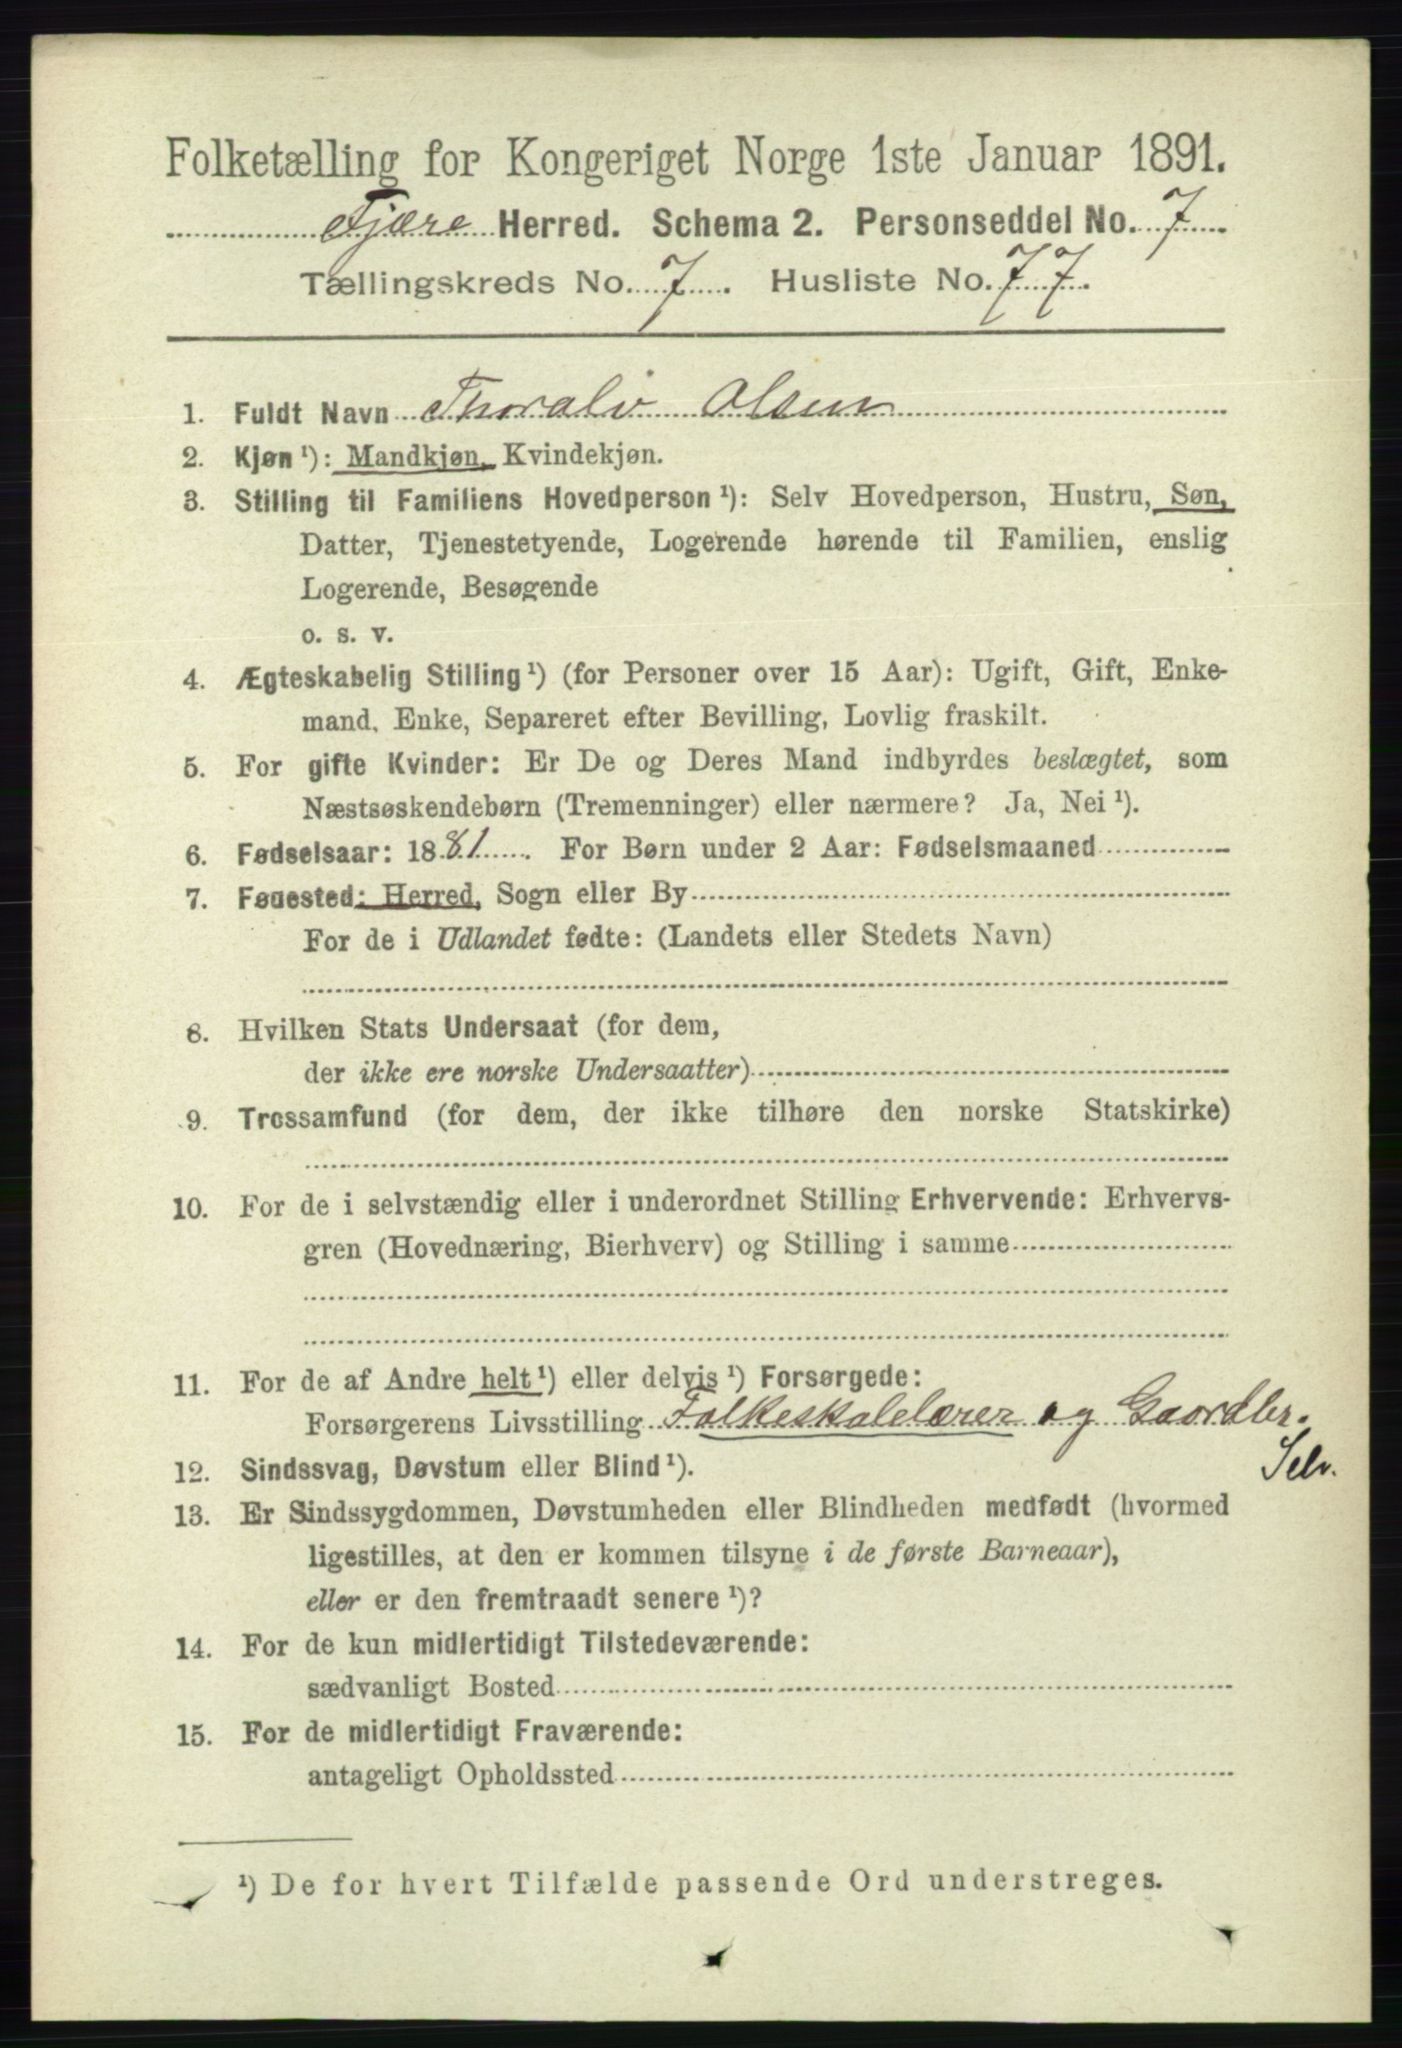 Folketælling for Kongeriget Norge 1ste Januar 1891.
Fjære Herred. Schema 2. Personseddel No. 7
Tællingskreds No. 7. Husliste No. 77.
1. Fuldt Navn Thoralv Olsen
2. Kjøn ¹): Mandkjøn, Kvindekjøn.
3. Stilling til Familiens Hovedperson ¹): Selv Hovedperson, Hustru, Søn,
Datter, Tjenestetyende, Logerende hørende til Familien, enslig
Logerende, Besøgende
o. s. v.
4. Ægteskabelig Stilling ¹) (for Personer over 15 Aar): Ugift, Gift, Enke-
mand, Enke, Separeret efter Bevilling, Lovlig fraskilt.
5. For gifte Kvinder: Er De og Deres Mand indbyrdes beslægtet, som
Næstsøskendebørn (Tremenninger) eller nærmere? Ja, Nei ¹).
6. Fødselsaar: 1881. For Børn under 2 Aar: Fødselsmaaned
7. Føuested: Herred, Sogn eller By
For de i Udlandet fødte: (Landets eller Stedets Navn)
8. Hvilken Stats Undersaat (for dem,
der ikke ere norske Undersaatter)
9. Trossamfund (for dem, der ikke tilhøre den norske Statskirke)
10. For de i selvstændig eller i underordnet Stilling Erhvervende: Erhvervs-
gren (Hovednæring, Bierhverv) og Stilling i samme
11. For de af Andre helt ¹) eller delvis ¹) Forsørgede:
Forsørgerens Livsstilling Folkeskolelærer og Gaardbr.
Selv.
12. Sindssvag, Døvstum eller Blind ¹).
13. Er Sindssygdommen, Døvstumheden eller Blindheden medfødt (hvormed
ligestilles, at den er kommen tilsyne i de første Barneaar),
eller er den fremtraadt senere ¹)?
14. For de kun midlertidigt Tilstedeværende:
sædvanligt Bosted
15. For de midlertidigt Fraværende:
antageligt Opholdssted
¹) De for hvert Tilfælde passende Ord understreges.